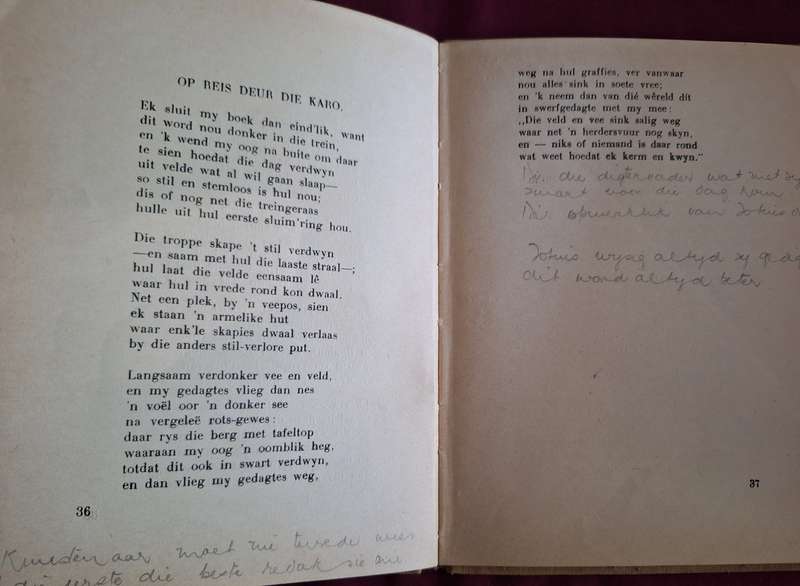 OP REIS DEUR DIE KARO.
Ek sluit my boek dan eind'lik, want
dit word nou donker in die trein,
en 'k wend my oog na buite om daar
te sien hoedat die dag verdwyn
uit velde wat al wil gaan slaap—
so stil en stemloos is hul nou;
dis of nog net die treingeraas
hulle uit hul eerste sluim'ring hou.
Die troppe skape 't stil verdwyn
—en saam met hul die laaste straal—;
hul laat die velde eensaam lê
waar hul in vrede rond kon dwaal.
Net een plek, by 'n veepos, sien
ek staan 'n armelike hut
waar enk'le skapies dwaal verlaas
by die anders stil-verlore put.
Langsaam verdonker vee en veld,
en my gedagtes vlieg dan nes
'n voël oor 'n donker see
na vergeleë rots-gewes:
daar rys die berg met tafeltop
waaraan my oog 'n oomblik heg,
totdat dit ook in swart verdwyn,
en dan vlieg my gedagtes weg,
36
Kunstenaar moet nie tweede wees
die eerste die beste redak sie
weg na hul graffies, ver vanwaar
nou alles sink in soete vree;
en 'k neem dan van dié wêreld dit
in swerfgedagte met my mee:
„Die veld en vee sink salig weg
waar net 'n herdersvuur nog skyn,
en — niks of niemand is daar rond
wat weet hoedat ek kerm en kwyn."
die wat met sy
smart voor die dag kom
van Totius
Totius wysig altyd sy
dit word altyd beter
37